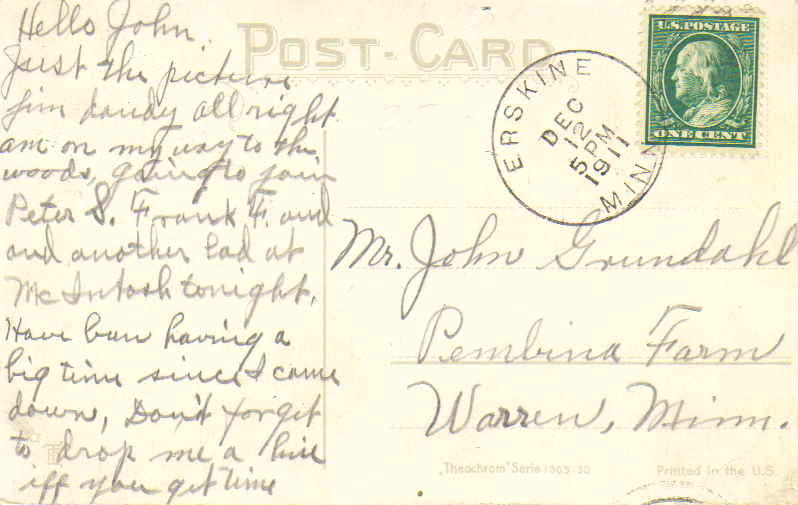 Hello John.
Just the picture
Jim dandy all right
am on my way to the
woods, going to join
Peter S. Frank F. and
and another lad at
McIntosh tonight.
Have bun having a
big time since I came
down, Don't forget
to drop me a line
iff you get time
POST-CARD
ERSKINE
DEC
12
5 PM
1911
MINN
U.S. POSTAGE
ONE CENT
Mr. John Grundahl
Pembina Farm
Warren, Minn.
„Theochrom" Serie 1063-30
Printed in the U.S.